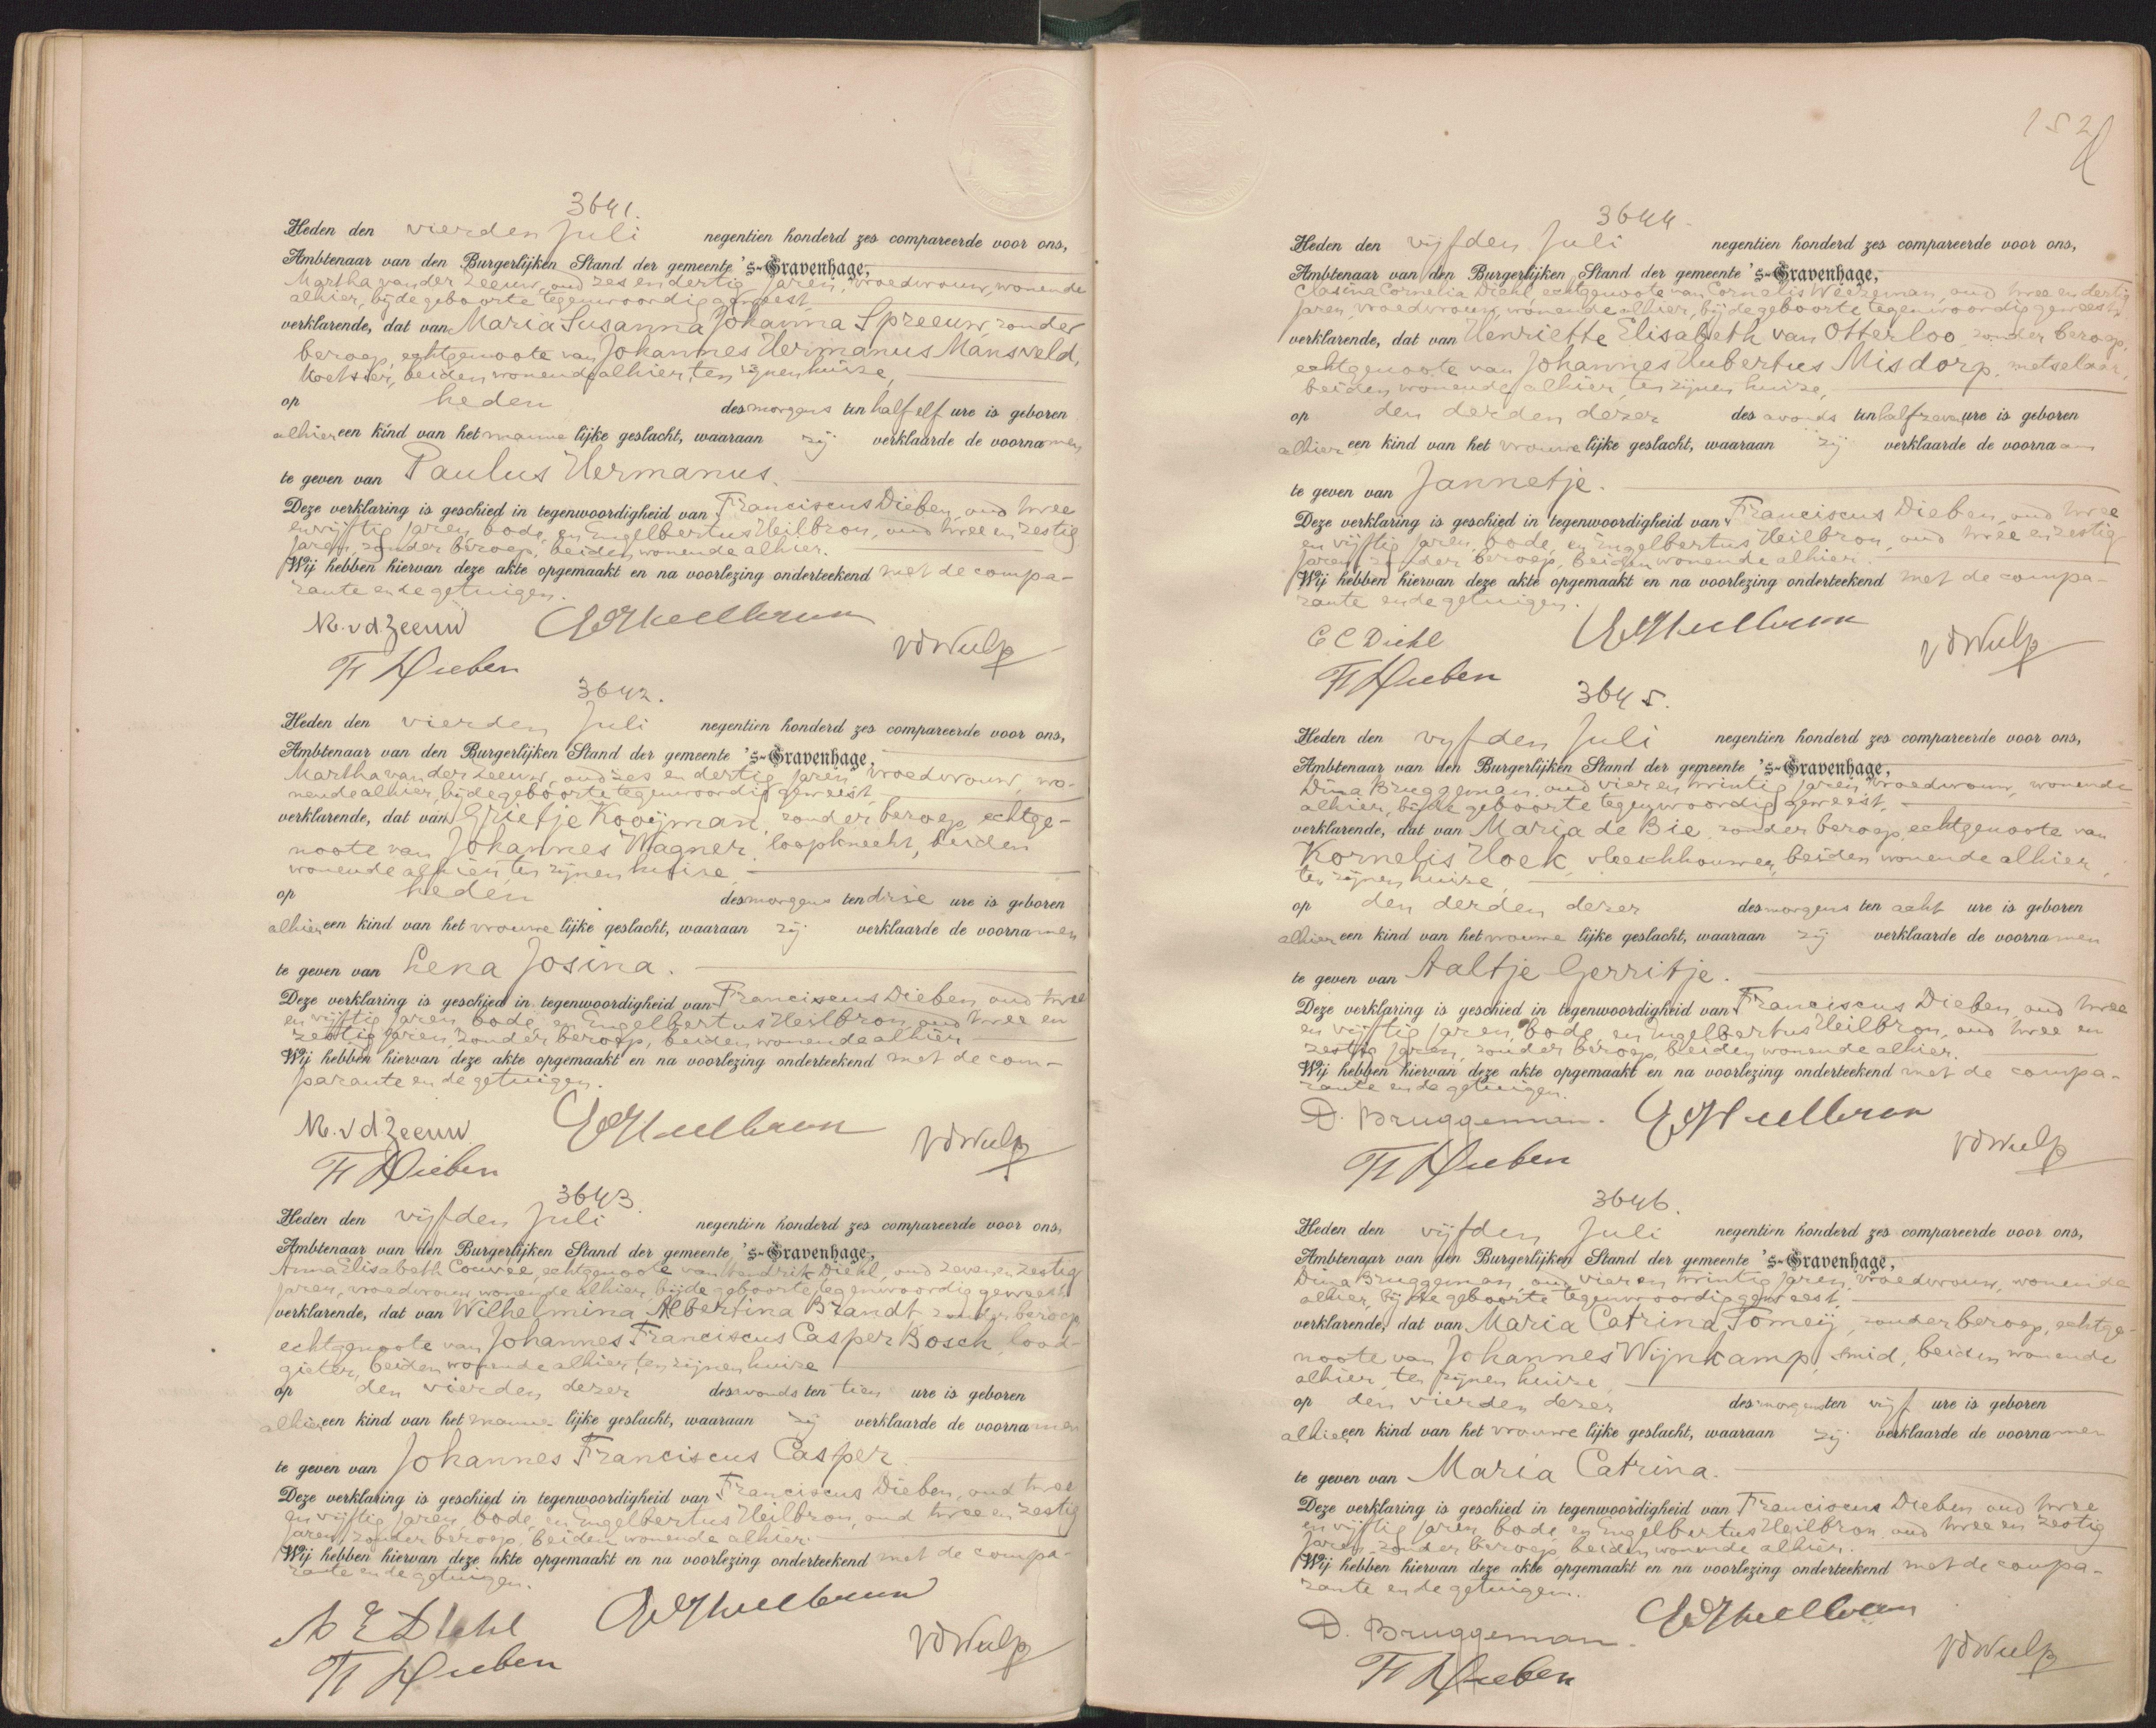 3641.
Heden den vierden Juli negentien honderd zes compareerde voor ons,
Ambtenaar van den Burgerlijken Stand der gemeente 's-Gravenhage,
Martha van der Zeeuw, oud zes en dertig jaren, vroedvrouw, wonende
alhier, bij de geboorte tegenwoordig geweest
verklarende, dat van Maria Susanna Johanna Spreeuw, zonder
beroep, echtgenoote van Johannes Hermanus Mansveld,
koetsier, beiden wonende alhier, ten zijnen huize,
op heden des morgens ten half elf ure is geboren
alhier een kind van het mannelijke geslacht, waaraan zij verklaarde de voornamen
te geven van Paulus Hermanus.
Deze verklaring is geschied in tegenwoordigheid van Franciscus Dieben, oud twee
en vijftig jaren, bode, en Engelbertus Heilbron, oud twee en zestig
jaren, zonder beroep, beiden wonende alhier.
Wij hebben hiervan deze akte opgemaakt en na voorlezing onderteekend met de compa-
rante en de getuigen.
M. v d Zeeuw
vd Wulp
F Dieben
3642.
Heden den vierden Juli negentien honderd zes compareerde voor ons,
Ambtenaar van den Burgerlijken Stand der gemeente 's-Gravenhage,
Martha van der Zeeuw, oud zes en dertig jaren, vroedvrouw, wo-
nende alhier, bij de geboorte tegenwoordig geweest
verklarende, dat van Grietje Kooijman, zonder beroep, echtge-
noote van Johannes Wagner, loopknecht, beiden
wonende alhier, ten zijnen huize,
op heden des morgens ten drie ure is geboren
alhier een kind van het vrouwelijke geslacht, waaraan zij verklaarde de voornamen
te geven van Lena Josina.
Deze verklaring is geschied in tegenwoordigheid van Franciscus Dieben, oud twee
en vijftig jaren, bode, en Engelbertus Heilbron, oud twee en
zestig jaren, zonder beroep, beiden wonende alhier
Wij hebben hiervan deze akte opgemaakt en na voorlezing onderteekend met de com-
parante en de getuigen.
M. v d Zeeuw
vd Wulp
F Dieben
3643.
Heden den vijfden Juli negentien honderd zes compareerde voor ons,
Ambtenaar van den Burgerlijken Stand der gemeente 's-Gravenhage,
Anna Elisabeth Couvée, echtgenoote van Hendrik Diehl, oud zeven en zestig
jaren, vroedvrouw, wonende alhier, bij de geboorte tegenwoordig geweest
verklarende, dat van Wilhelmina Albertina Brandt, zonder beroep,
echtgenoote van Johannes Franciscus Casper Bosch, lood-
gieter, beiden wonende alhier, ten zijnen huize
op den vierden dezer des avonds ten tien ure is geboren
alhier een kind van het mannelijke geslacht, waaraan zij verklaarde de voornamen
te geven van Johannes Franciscus Casper
Deze verklaring is geschied in tegenwoordigheid van Franciscus Dieben, oud twee
en vijftig jaren, bode, en Engelbertus Heilbron, oud twee en zestig
jaren, zonder beroep, beiden wonende alhier.
Wij hebben hiervan deze akte opgemaakt en na voorlezing onderteekend met de compa-
rante en de getuigen.
A E Diehl
vd Wulp
F Dieben
152
3644.
Heden den vijfden Juli negentien honderd zes compareerde voor ons,
Ambtenaar van den Burgerlijken Stand der gemeente 's-Gravenhage,
Clasina Cornelia Diehl, echtgenoote van Cornelis Weezeman, oud twee en dertig
jaren, vroedvrouw, wonende alhier, bij de geboorte tegenwoordig geweest,
verklarende, dat van Henriette Elisabeth van Otterloo, zonder beroep,
echtgenoote van Johannes Hubertus Misdorp, metselaar,
beiden wonende alhier, ten zijnen huize,
op den derden dezer des avonds ten half zeven ure is geboren
alhier een kind van het vrouwelijke geslacht, waaraan zij verklaarde de voornaam
te geven van Jannetje.
Deze verklaring is geschied in tegenwoordigheid van Franciscus Dieben, oud twee
en vijftig jaren, bode, en Engelbertus Heilbron, oud twee en zestig
jaren, zonder beroep, beiden wonende alhier.
Wij hebben hiervan deze akte opgemaakt en na voorlezing onderteekend met de compa-
rante en de getuigen.
C C Diehl
vd Wulp
F Dieben
3645.
Heden den vyfden Juli negentien honderd zes compareerde voor ons,
Ambtenaar van den Burgerlijken Stand der gemeente 's-Gravenhage,
Dina Bruggeman, oud vier en twintig jaren, vroedvrouw, wonende
alhier, bij de geboorte tegenwoordig geweest,
verklarende, dat van Maria de Bie, zonder beroep, echtgenoote van
Kornelis Hoek, vleeschhouwer, beiden wonende alhier,
ten zijnen huize,
op den derden dezer des morgens ten acht ure is geboren
alhier een kind van het vrouwelijke geslacht, waaraan zij verklaarde de voornamen
te geven van Aaltje Gerritje.
Deze verklaring is geschied in tegenwoordigheid van Franciscus Dieben, oud twee
en vijftig jaren, bode, en Engelbertus Heilbron, oud twee en
zestig jaren, zonder beroep, beiden wonende alhier.
Wij hebben hiervan deze akte opgemaakt en na voorlezing onderteekend met de compa-
rante en de getuigen.
D. Bruggeman.
vd Wulp
F Dieben
3646.
Heden den vijfden Juli negentien honderd zes compareerde voor ons,
Ambtenaar van den Burgerlijken Stand der gemeente 's-Gravenhage,
Dina Bruggeman, oud vier en twintig jaren, vroedvrouw, wonende
alhier, bij de geboorte tegenwoordig geweest,
verklarende, dat van Maria Catrina Tomeij, zonder beroep, echtge-
noote van Johannes Wijnkamp, smid, beiden wonende
alhier, ten zijnen huize,
op den vierden dezer des morgens ten vijf ure is geboren
alhier een kind van het vrouwelijke geslacht, waaraan zij verklaarde de voornamen
te geven van Maria Catrina.
Deze verklaring is geschied in tegenwoordigheid van Franciscus Dieben, oud twee
en vijftig jaren, bode, en Engelbertus Heilbron, oud twee en zestig
jaren, zonder beroep, beiden wonende alhier.
Wij hebben hiervan deze akte opgemaakt en na voorlezing onderteekend met de compa-
rante en de getuigen.
D. Bruggeman.
vd Wulp
F Dieben